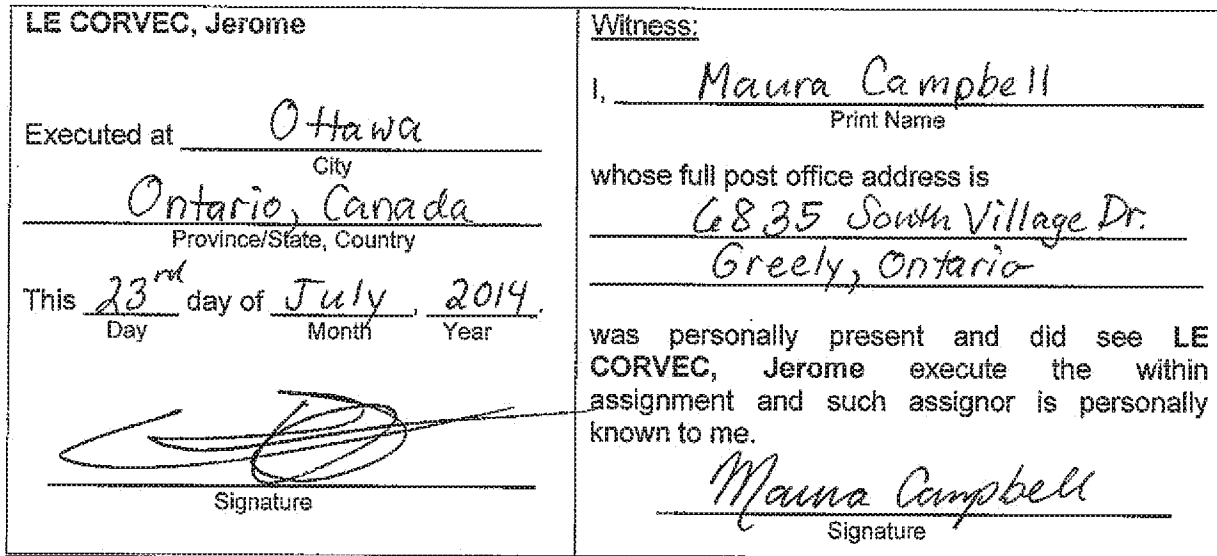 LE CORVEC, Jerome
Executed at Ottawa
City
Ontario, Canada
Province/State, Country
This 23rd day of July, 2014.
Day Month Year
Signature
Witness:
I, Maura Campbell
Print Name
whose full post office address is
6835 South Village Dr.
Greely, Ontario
was personally present and did see LE
CORVEC, Jerome execute the within
assignment and such assignor is personally
known to me.
Maura Campbell
Signature